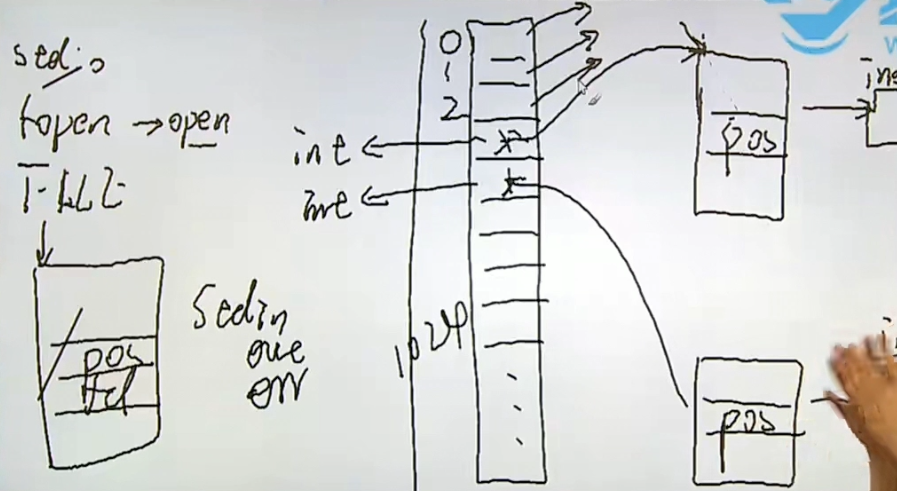 stdio
fopen → open
FILE
pos
fd
stdin
out
err
0
1
2
int
int
1024
*
*
pos
pos